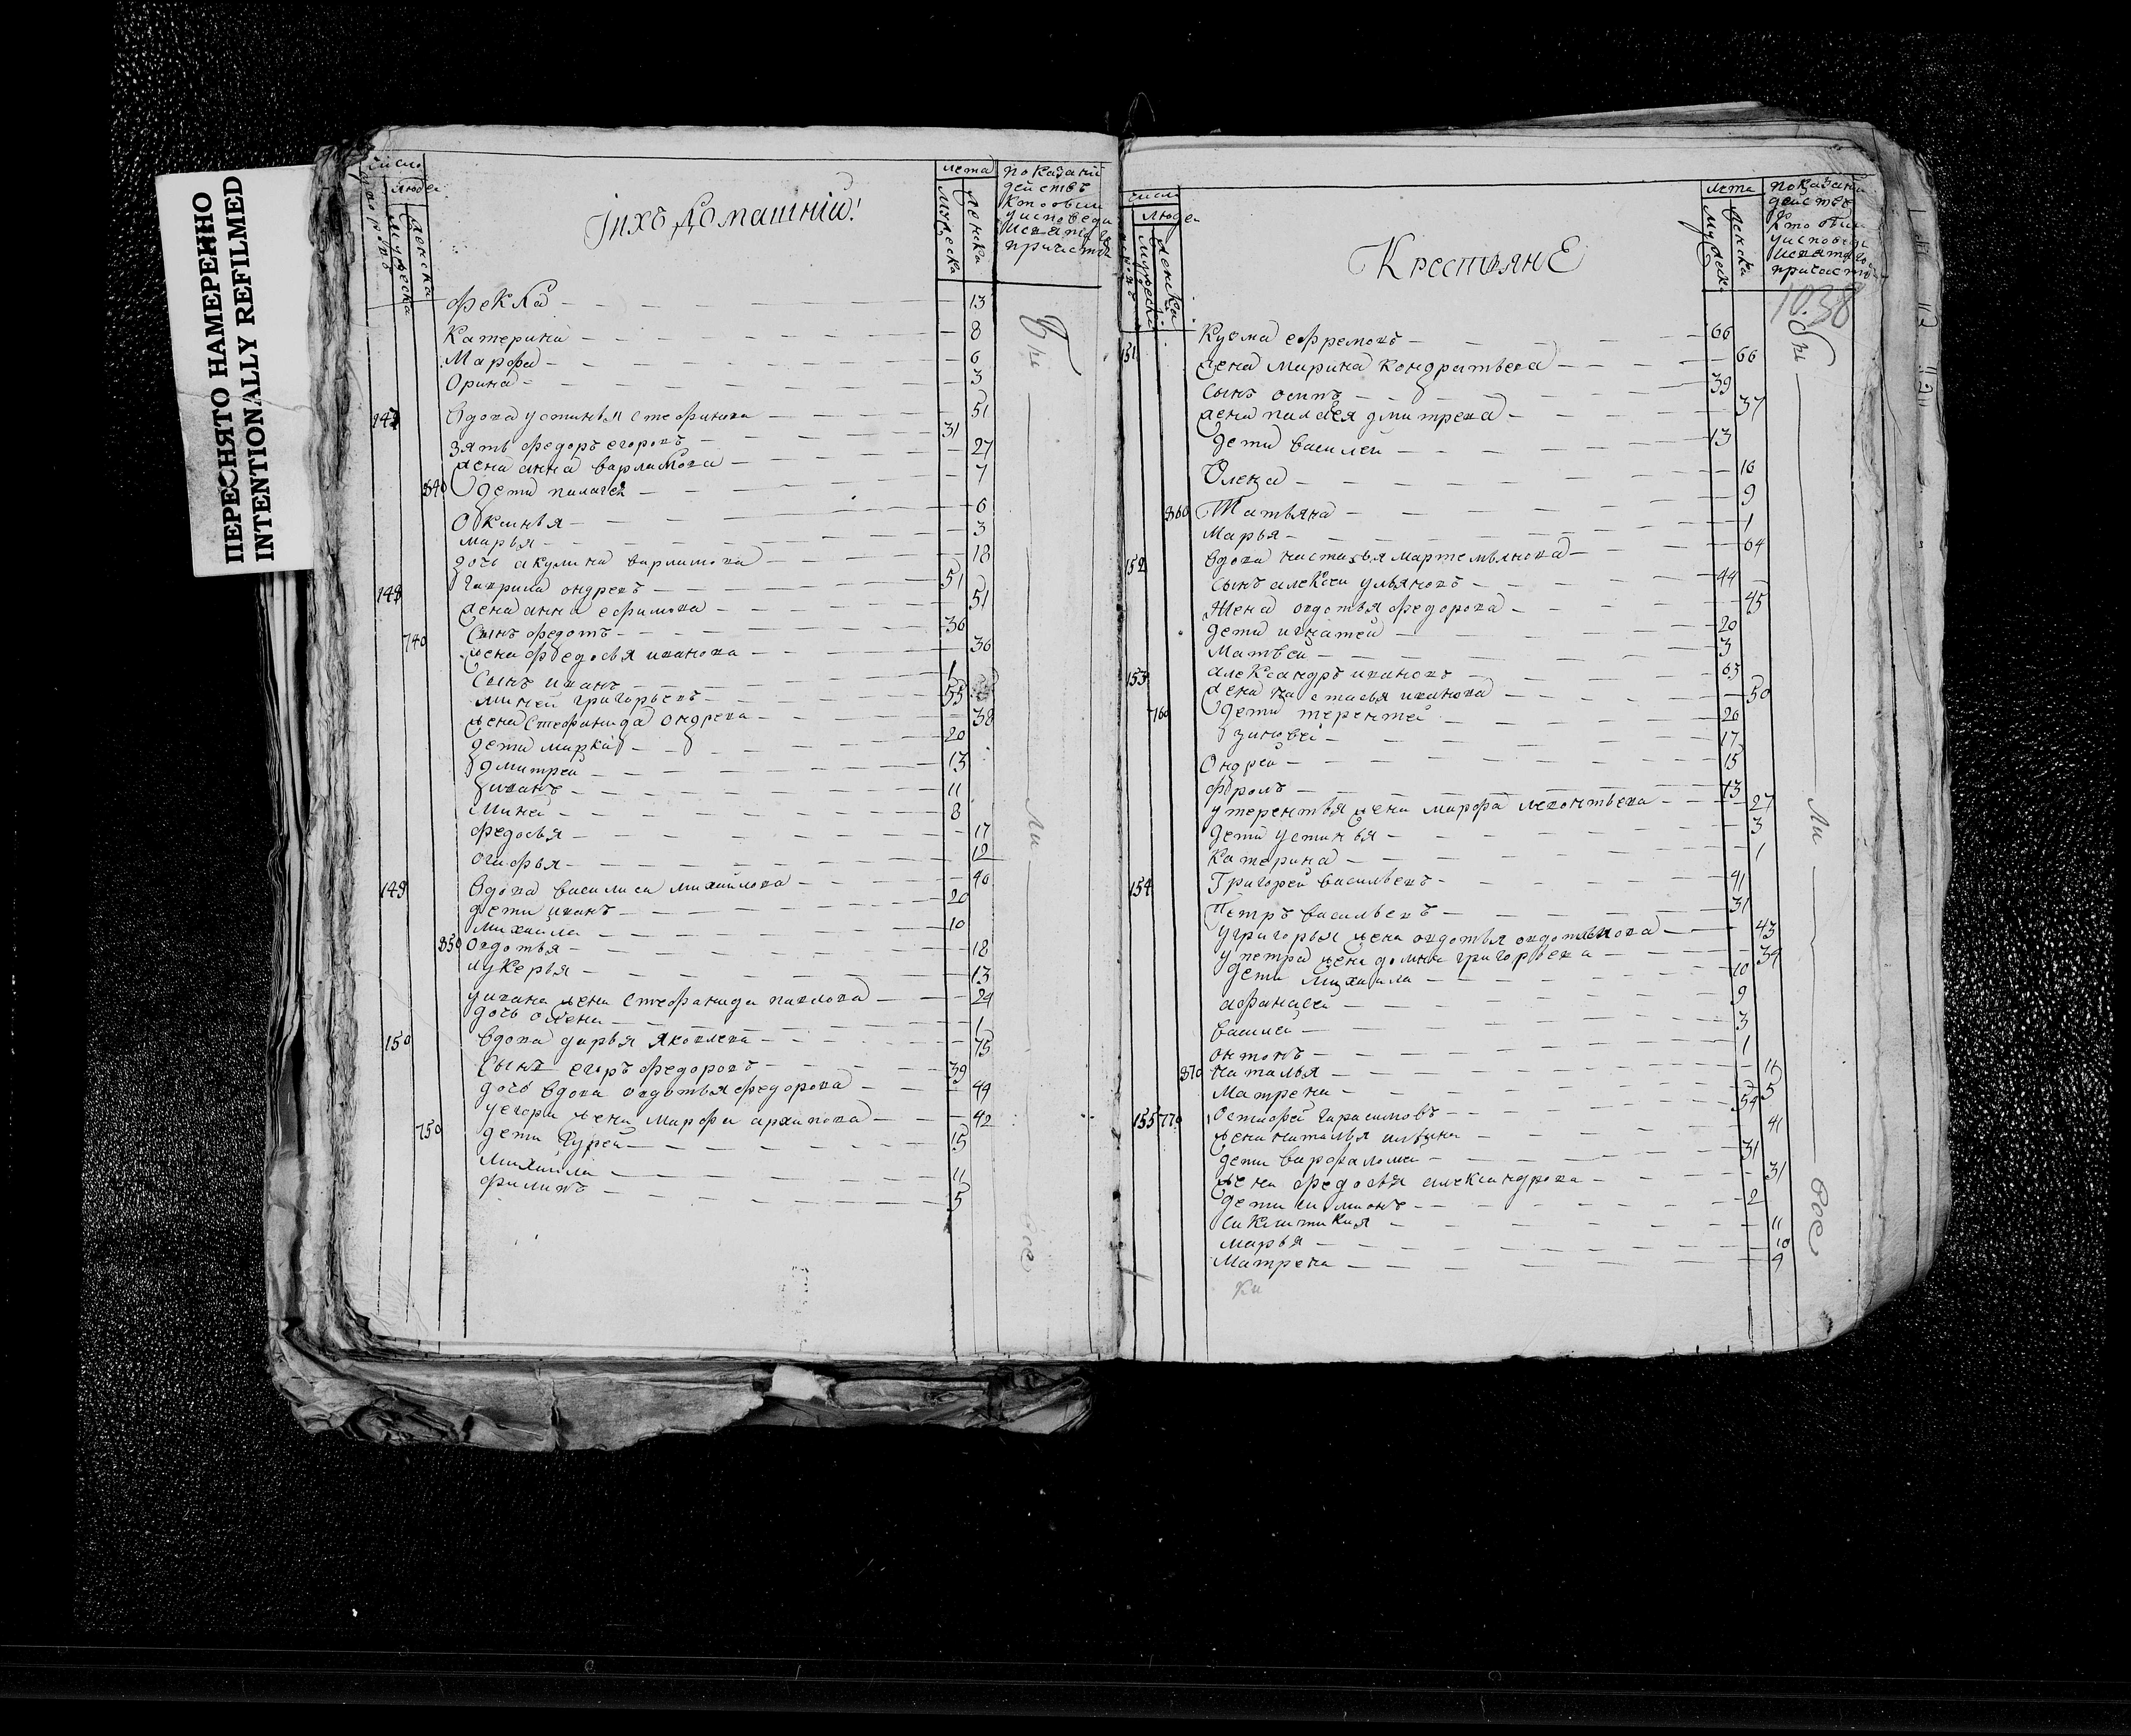 ПЕРЕСНЯТО НАМЕРЕННО
INTENTIONALLY REFILMED
число
людей
мужеска
женска
Iихъ домашнии
лета
мужеска
женска
показани
действ
кто были
уисповеди
исвятаго
причаст
Фекла 13
Катерина 8
Марфа 6
Орина 3
147 вдова устинья стефанова 51
зять федоръ егоровъ 31
жена анна варламова 27
840 дети палагея 7
Оксинья 6
марья 3
дочь акулина варламова 18
148 гаврила ондревъ 51
жена анна ефимова 51
сынъ федотъ 36
740 жена федосья иванова 36
сынъ иванъ 1
миней григорьевъ 55
жена стефанида ондрева 38
дети марка 20
дмитрей 13
иванъ 11
Миней 8
федосья 17
огафья 12
149 вдова василиса михаилова 40
дети иванъ 20
михаила 10
850 овдотья 18
лукерья 13
уивана жена стефанида павлова 29
дочь олена 1
150 вдова дарья яковлева 75
сынъ егоръ федоровъ 39
дочь вдова овдотья федорова 49
уегора жена марфа архипова 42
750 дети гурей 15
михаила 11
филипъ 5
Бы
ли
все
число
людей
мужеска
женска
КрестьянЕ
лета
мужеска
женска
показани
действ
кто были
уисповеди
исвятаго
причаст
1038
151 Кузма ефремовъ 66
жена марина кондратьева 66
сынъ осипъ 39
жена палагея дмитрева 37
дети василей 13
Олена 16
860 Татьяна 9
Марья 1
152 вдова настасья мартемьянова 64
сынъ алексеи ульяновъ 44
жена овдотья федорова 45
дети игнатей 20
Матвей 3
153 александръ ивановъ 63
жена настасья иванова 50
760 дети терентей 26
зиновей 17
Ондрей 15
фролъ 13
утерентья жена марфа леонтьева 27
дети устинья 3
катерина 1
154 Григорей васильевъ 41
Петръ васильевъ 31
угригорья жена овдотья 43
упетра жена домна григорьева 34
дети михаила 10
афанасей 9
василей 3
онтонъ 1
870 наталья 11
Матрена 5
155 770 остафей гарасимовъ 54
жена наталья 41
дети варфаломей 31
жена федосья александрова 31
дети симионъ 2
11
марья 10
Матрена 9
Бы
ли
все